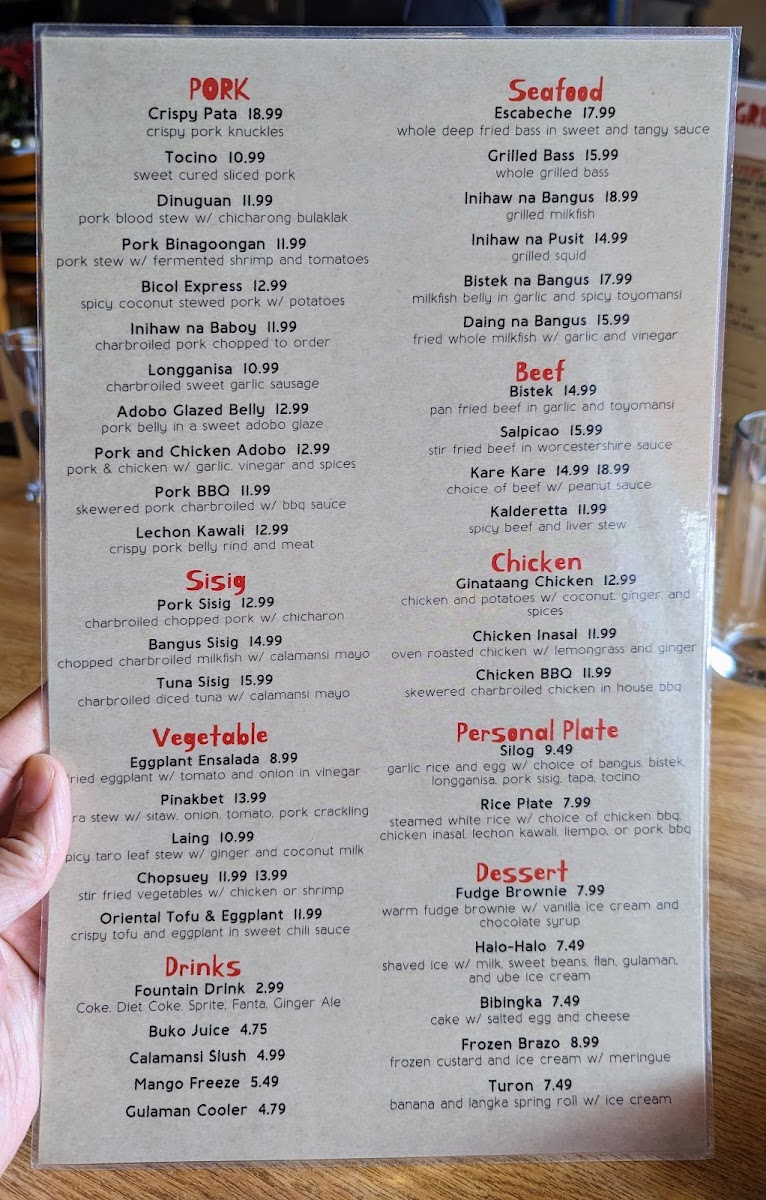 PORK
Crispy Pata 18.99
crispy pork knuckles
Tocino 10.99
sweet cured sliced pork
Dinuguan 11.99
pork blood stew w/ chicharong bulaklak
Pork Binagoongan 11.99
pork stew w/ fermented shrimp and tomatoes
Bicol Express 12.99
spicy coconut stewed pork w/ potatoes
Inihaw na Baboy 11.99
charbroiled pork chopped to order
Longganisa 10.99
charbroiled sweet garlic sausage
Adobo Glazed Belly 12.99
pork belly in a sweet adobo glaze
Pork and Chicken Adobo 12.99
pork & chicken w/ garlic, vinegar and spices
Pork BBQ 11.99
skewered pork charbroiled w/ bbq sauce
Lechon Kawali 12.99
crispy pork belly rind and meat
Sisig
Pork Sisig 12.99
charbroiled chopped pork w/ chicharon
Bangus Sisig 14.99
chopped charbroiled milkfish w/ calamansi mayo
Tuna Sisig 15.99
charbroiled diced tuna w/ calamansi mayo
Vegetable
Eggplant Ensalada 8.99
fried eggplant w/ tomato and onion in vinegar
Pinakbet 13.99
ra stew w/ sitaw, onion, tomato, pork crackling
Laing 10.99
picy taro leaf stew w/ ginger and coconut milk
Chopsuey 11.99 13.99
stir fried vegetables w/ chicken or shrimp
Oriental Tofu & Eggplant 11.99
crispy tofu and eggplant in sweet chili sauce
Drinks
Fountain Drink 2.99
Coke, Diet Coke, Sprite, Fanta, Ginger Ale
Buko Juice 4.75
Calamansi Slush 4.99
Mango Freeze 5.49
Gulaman Cooler 4.79
Seafood
Escabeche 17.99
whole deep fried bass in sweet and tangy sauce
Grilled Bass 15.99
whole grilled bass
Inihaw na Bangus 18.99
grilled milkfish
Inihaw na Pusit 14.99
grilled squid
Bistek na Bangus 17.99
milkfish belly in garlic and spicy toyomansi
Daing na Bangus 15.99
fried whole milkfish w/ garlic and vinegar
Beef
Bistek 14.99
pan fried beef in garlic and toyomansi
Salpicao 15.99
stir fried beef in worcestershire sauce
Kare Kare 14.99 18.99
choice of beef w/ peanut sauce
Kalderetta 11.99
spicy beef and liver stew
Chicken
Ginataang Chicken 12.99
chicken and potatoes w/ coconut, ginger, and
spices
Chicken Inasal 11.99
oven roasted chicken w/ lemongrass and ginger
Chicken BBQ 11.99
skewered charbroiled chicken in house bbq
Personal Plate
Silog 9.49
garlic rice and egg w/ choice of bangus, bistek,
longganisa, pork sisig, tapa, tocino
Rice Plate 7.99
steamed white rice w/ choice of chicken bbq,
chicken inasal, lechon kawali, liempo, or pork bbq
Dessert
Fudge Brownie 7.99
warm fudge brownie w/ vanilla ice cream and
chocolate syrup
Halo-Halo 7.49
shaved ice w/ milk, sweet beans, flan, gulaman,
and ube ice cream
Bibingka 7.49
cake w/ salted egg and cheese
Frozen Brazo 8.99
frozen custard and ice cream w/ meringue
Turon 7.49
banana and langka spring roll w/ ice cream